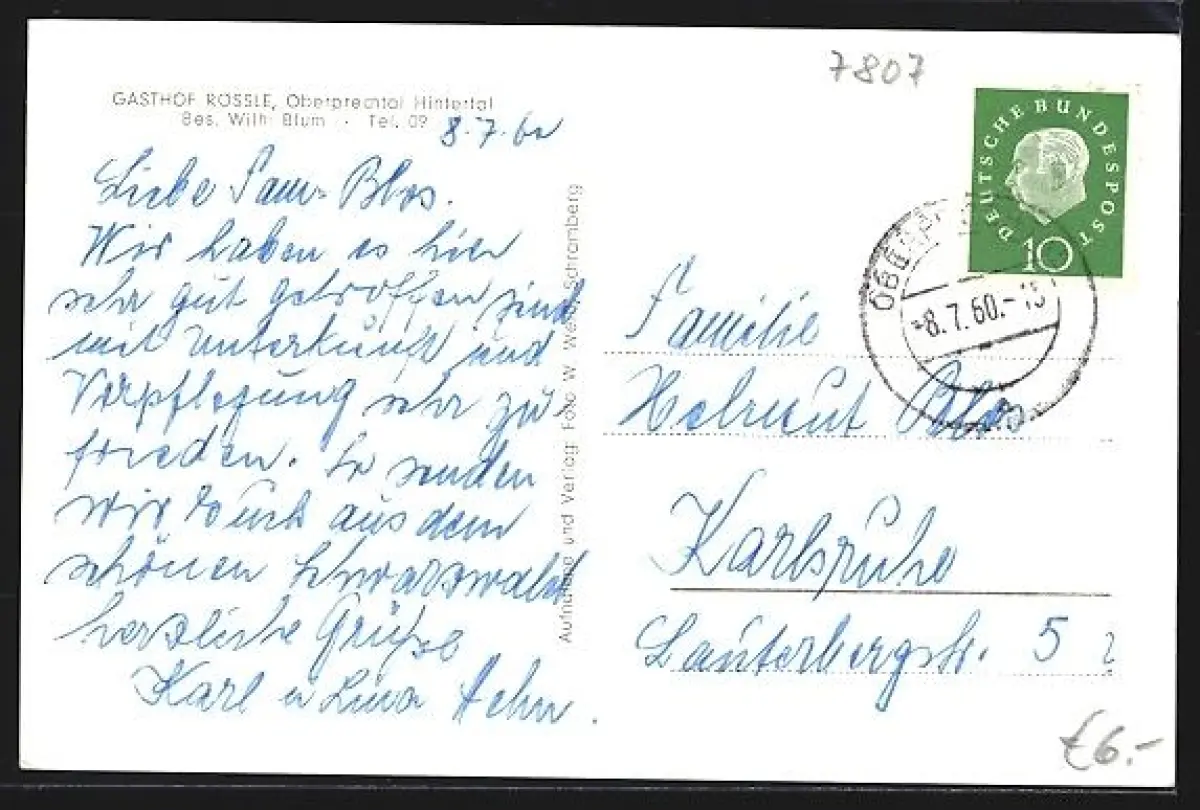 7807
GASTHOF RÖSSLE, Oberprechtal Hintertal
Bes. Wilh. Blum · Tel. 09
8.7.60
Liebe Fam. Blos.
Wir haben es hier
sehr gut getroffen sind
mit Unterkunft und
Verpflegung sehr zu-
frieden. So senden
wir Euch aus dem
schönen Schwarzwald
herzliche Grüße
Karl u Lina Hehn.
Aufnahme und Verlag: Foto W. Schramberg
DEUTSCHE BUNDESPOST
10
-8.7.60.-15
Familie
Helmut Blos
Karlsruhe
Lauterbergstr. 5
€6.-